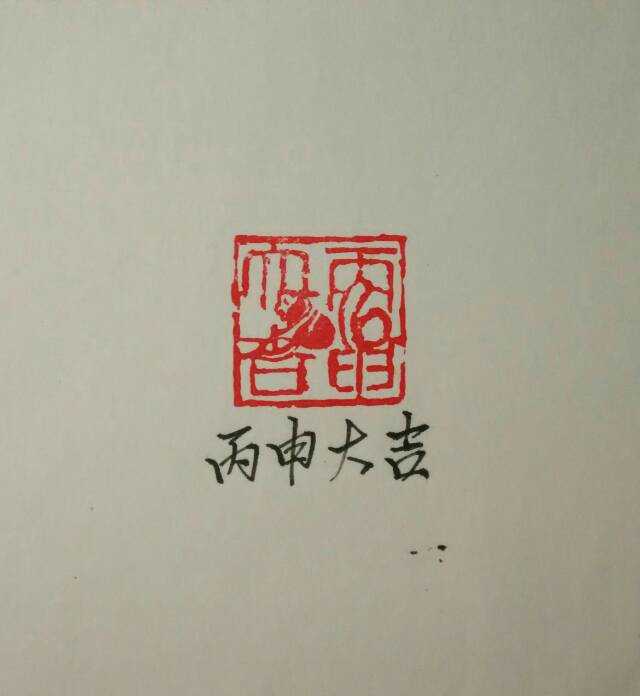 丙申
大吉
丙申大吉